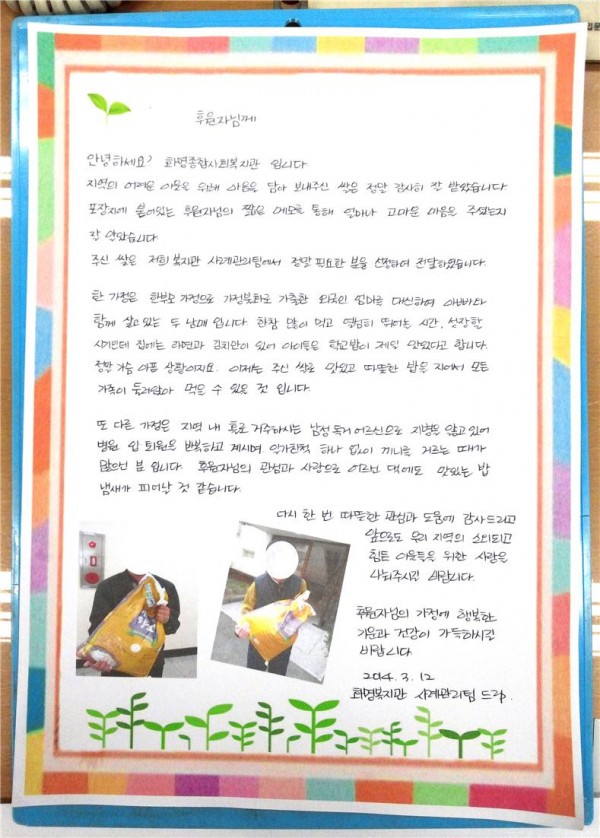 후원자님께
안녕하세요? 화명종합사회복지관 입니다
지역의 어려운 이웃을 위해 마음을 담아 보내주신 쌀은 정말 감사히 잘 받았습니다.
포장지에 붙어있는 후원자님의 짧은 메모를 통해 얼마나 고마운 마음을 주셨는지
잘 알았습니다
주신 쌀은 저희 복지관 사례관리팀에서 정말 필요한 분을 선정하여 전달하였습니다.
한 가정은 한부모 가정으로 가정불화로 가출한 외국인 엄마를 대신하여 아버지와
함께 살고 있는 두 남매 입니다. 한참 많이 먹고 열심히 뛰어놀 시간, 성장할
시기인데 집에는 라면과 김치만이 있어 아이들은 학교밥이 제일 맛있다고 합니다.
정말 가슴 아픈 상황이지요. 이제는 주신 쌀로 맛있고 따뜻한 밥을 지어서 모든
가족이 둘러앉아 먹을 수 있을 것 입니다.
또 다른 가정은 지역 내 홀로 거주하시는 남성 독거 어르신으로 지병을 앓고 있어
병원 입 퇴원을 반복하고 계시며 일가친척 하나 없이 끼니를 거르는 때가
많으신 분 입니다. 후원자님의 관심과 사랑으로 어르신 댁에도 맛있는 밥
냄새가 피어날 것 같습니다.
다시 한 번 따뜻한 관심과 도움에 감사드리고
앞으로도 우리 지역의 소외되고
힘든 이웃들을 위한 사랑을
나눠주시길 바랍니다.
후원자님의 가정에 행복한
기운과 건강이 가득하시길
바랍니다
2014. 3. 12
화명복지관 사례관리팀 드림.